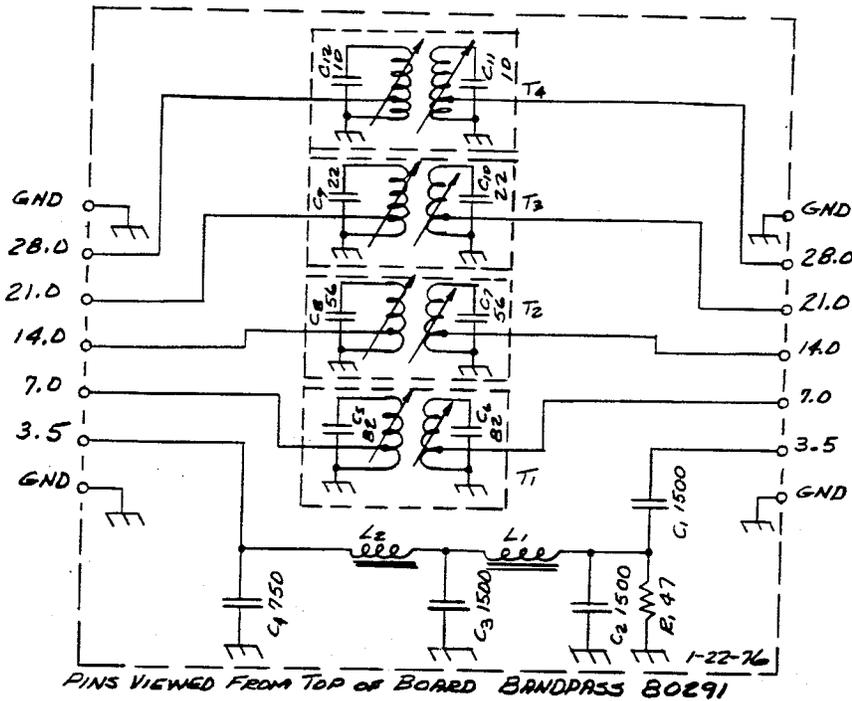 C12
10
C11
10
T4
C9
22
C10
22
T3
C8
56
C7
56
T2
C5
82
C6
82
T1
GND
28.0
21.0
14.0
7.0
3.5
GND
GND
28.0
21.0
14.0
7.0
3.5
GND
C1 1500
L2
L1
C4 750
C3 1500
C2 1500
R1 47
1-22-76
PINS VIEWED FROM TOP OF BOARD BANDPASS 80291